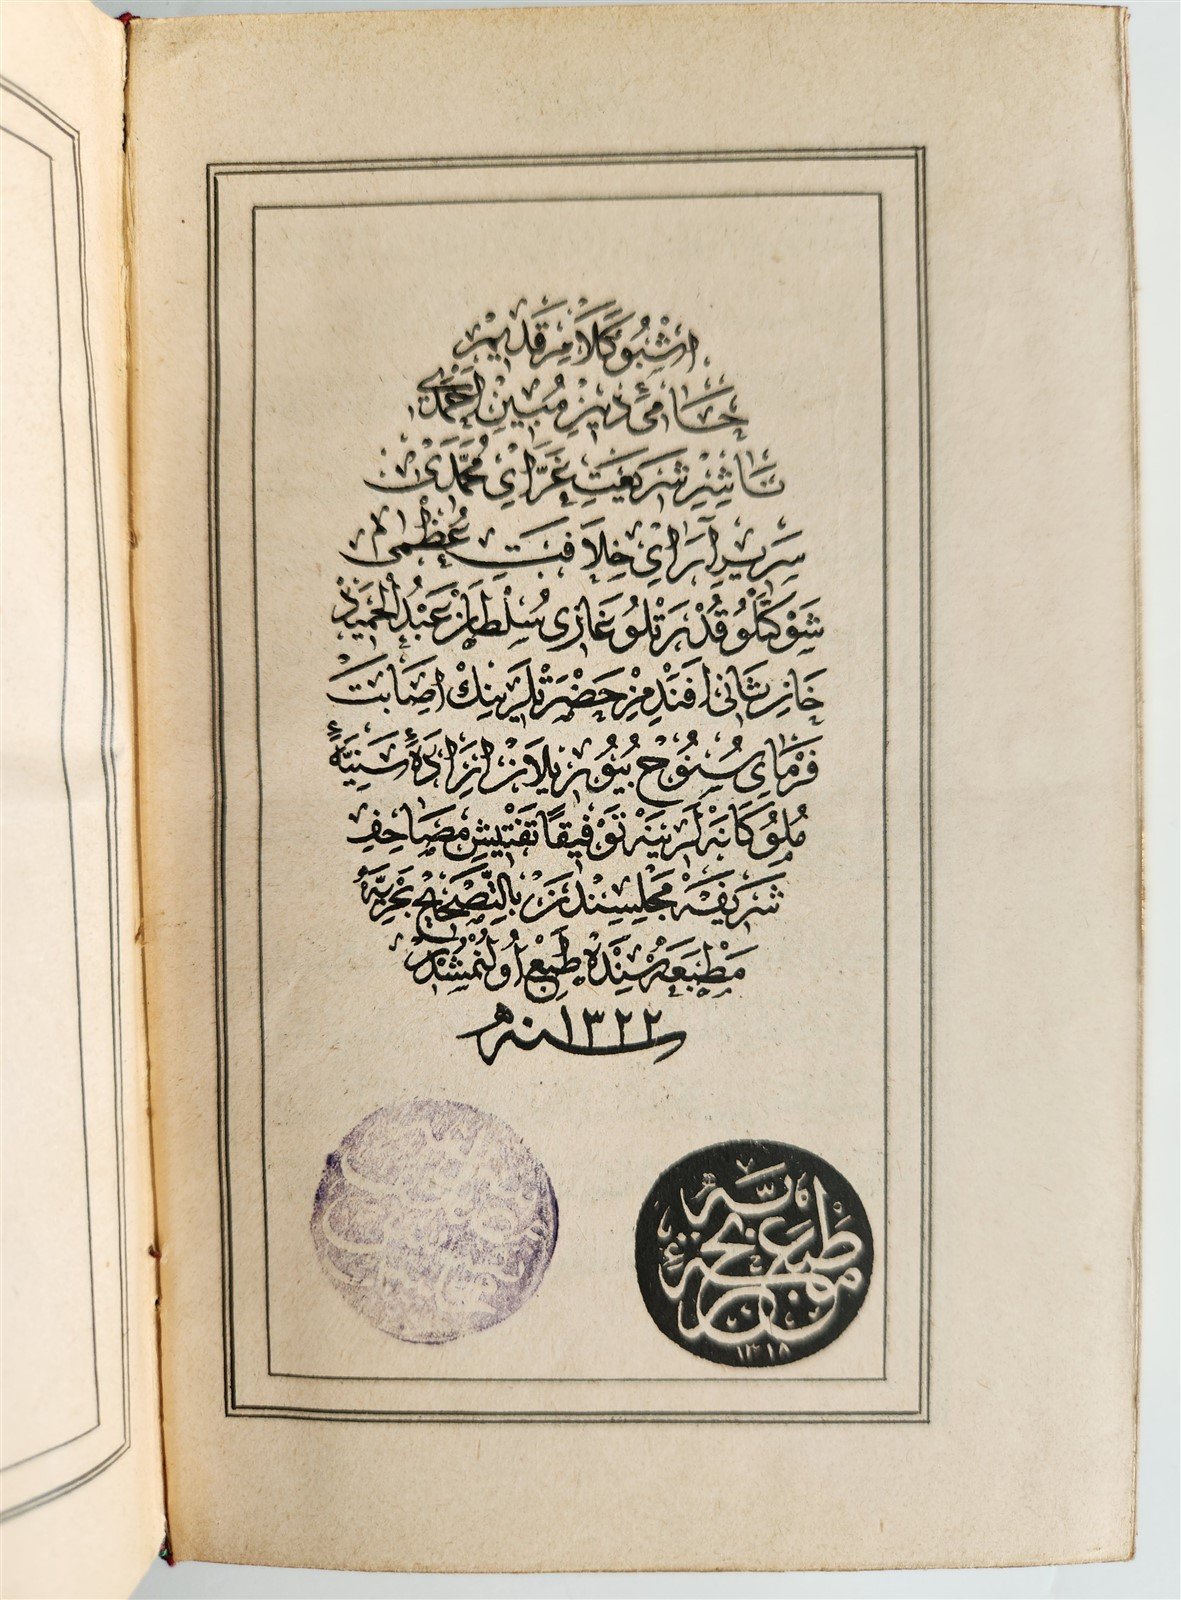 اِشْبُو كَلَامِ قَدِيمْ
حَامِئِ دِينِ مُبِينِ اَحْمَدِي
نَاشِرِ شَرِيعَتِ غَرَّايِ مُحَمَّدِي
سَرِيرْ آرَايِ خِلَافَتِ عُظْمٰى
شَوْكَتْلُو قُدْرَتْلُو غَازِى سُلْطَانْ عَبْدُ الْحَمِيدْ
خَانِ ثَانِى اَفَنْدِمِزْ حَضْرَتْلَرِينِكْ اِصَابَتْ
فَرْمَايِ سُنُوحْ بُيُورِيلَانْ اِرَادَهٔ سَنِيَّهٔ
مُلُوكَانَهْ لَرِينَهْ تَوْفِيقًا تَفْتِيشِ مَصَاحِفِ
شَرِيفَهْ مَجْلِسِنْدَنْ بِالتَّصْحِيحْ بَحْرِيَّهْ
مَطْبَعَهْ سِنْدَهْ طَبْعْ اُولُنْمُشْدُرْ
سنه ١٣٢٢
مطبعۀ بحريه
١٣١٨